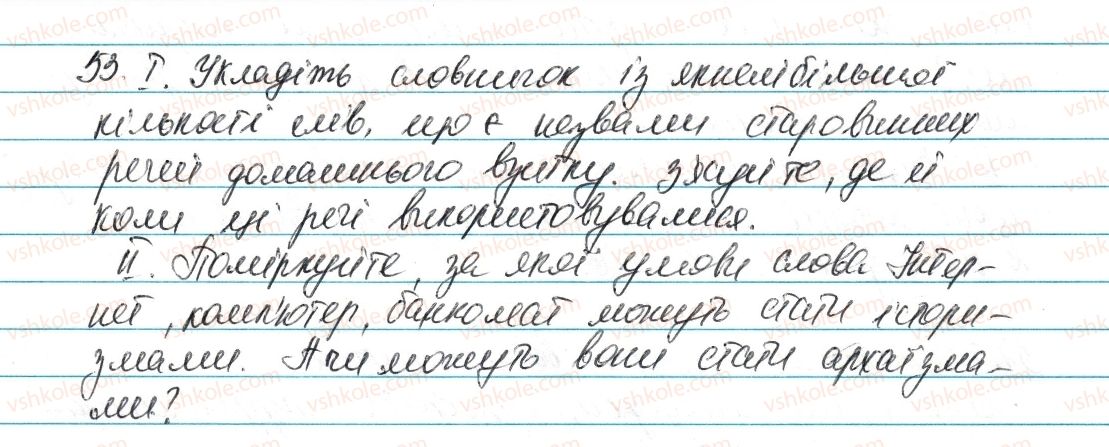 53 I. Укладіть словничок із якнайбільшої
кількості слів, що є назвами старовинних
речей домашнього вжитку. З'ясуйте, де й
коли ці речі використовувалися.
II. Поміркуйте, за якої умови слова Інтер-
нет, комп'ютер, банкомат можуть стати істори-
змами. А чи можуть вони стати архаїзма-
ми?